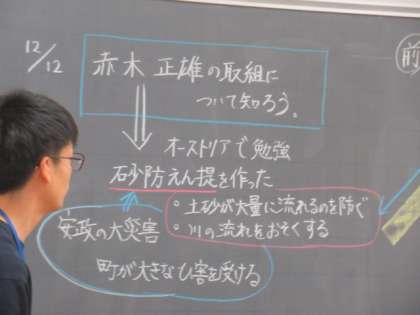 12/12
前
赤木 正雄の取組に
ついて知ろう。
オーストリアで勉強
石砂防えん提を作った
・土砂が大量に流れるのを防ぐ
・川の流れをおそくする
安政の大災害
町が大きなひ害を受ける